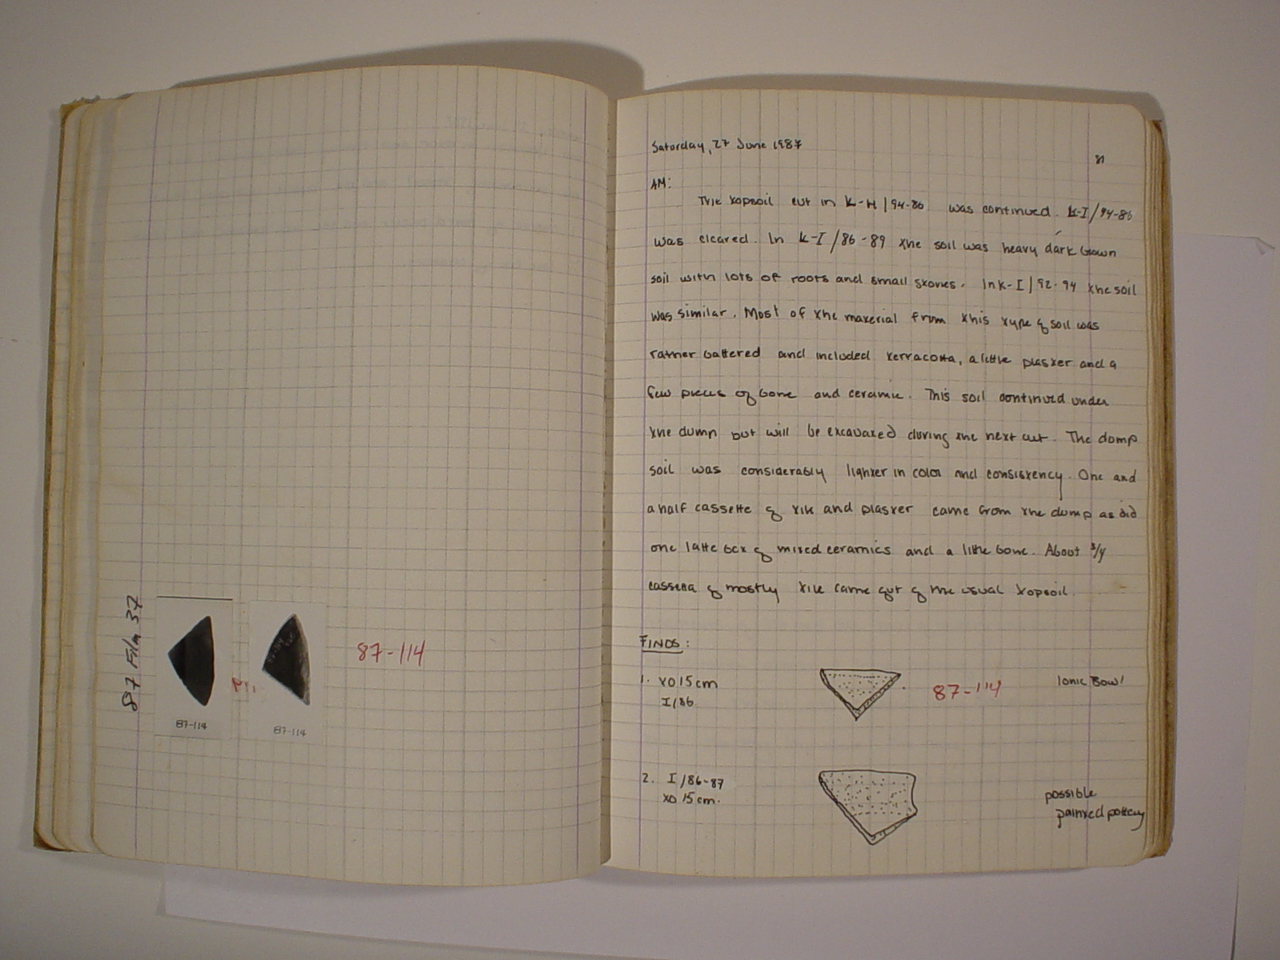 87 Film 37
87-114
87-114
87-114
Saturday, 27 June 1987
81
AM:
The topsoil cut in K-H/94-86 was continued. K-I/94-86
was cleared. In K-I/86-89 the soil was heavy dark brown
soil with lots of roots and small stones. In K-I/92-94 the soil
was similar. Most of the material from this type of soil was
rather battered and included terracotta, a little plaster and a
few pieces of bone and ceramic. This soil continued under
the dump but will be excavated during the next cut. The dump
soil was considerably lighter in color and consistency. One and
a half cassette of tile and plaster came from the dump as did
one latte box of mixed ceramics and a little bone. About 3/4
cassetta of mostly tile came out of the usual topsoil.
FINDS:
1. to 15cm
I/86
87-114
Ionic Bowl
2. I/86-87
to 15cm.
possible
painted pottery